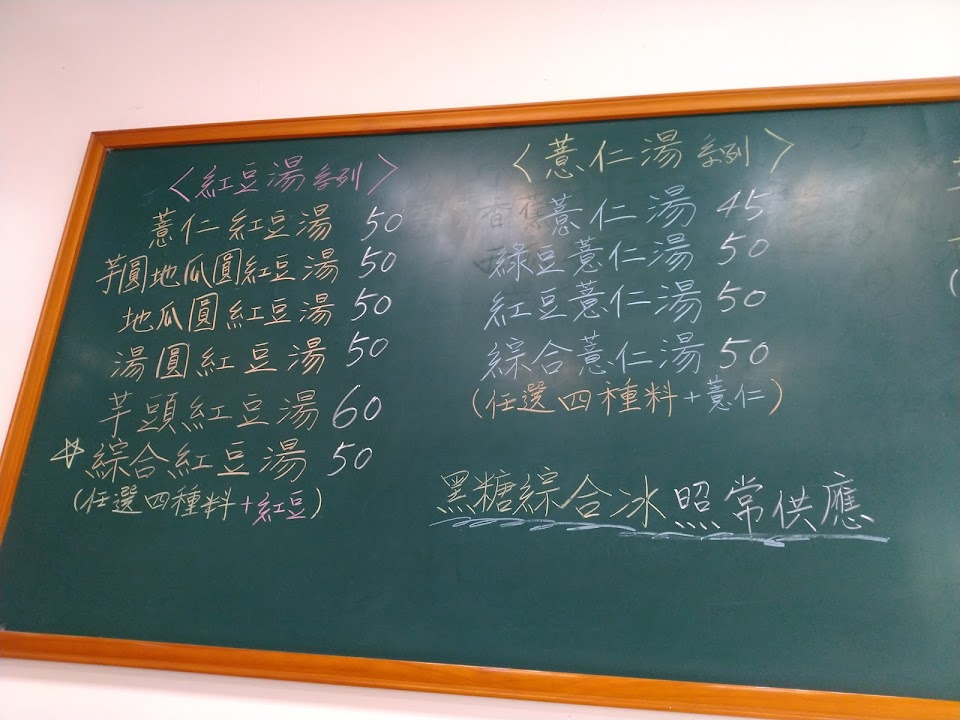 〈紅豆湯系列〉
薏仁紅豆湯 50
芋圓地瓜圓紅豆湯 50
地瓜圓紅豆湯 50
湯圓紅豆湯 50
芋頭紅豆湯 60
☆綜合紅豆湯 50
(任選四種料+紅豆)
〈薏仁湯系列〉
薏仁湯 45
綠豆薏仁湯 50
紅豆薏仁湯 50
綜合薏仁湯 50
(任選四種料+薏仁)
黑糖綜合冰照常供應